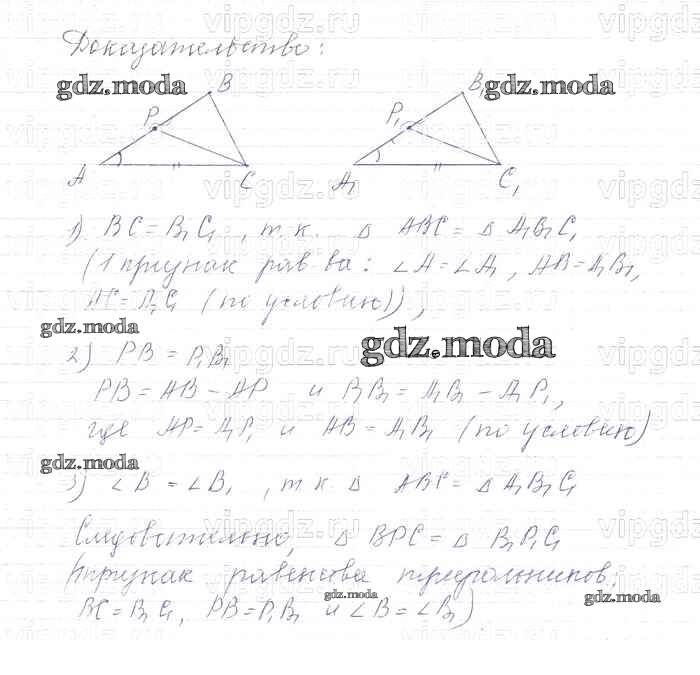 Доказательство:
gdz.moda
gdz.moda
B
B₁
P
P₁
A
C
A₁
C₁
1). BC = B₁C₁, т.к. △ ABC = △ A₁B₁C₁
(1 признак рав-ва: ∠A = ∠A₁, AB = A₁B₁,
AC = A₁C₁ (по условию)),
gdz.moda
gdz.moda
2) PB = P₁B₁
PB = AB – AP и P₁B₁ = A₁B₁ – A₁P₁,
где AP = A₁P₁ и AB = A₁B₁ (по условию)
gdz.moda
3) ∠B = ∠B₁, т.к. △ ABC = △ A₁B₁C₁
Следовательно, △ BPC = △ B₁P₁C₁
(1 признак равенства треугольников:
gdz.moda
gdz.moda
BC = B₁C₁, PB = P₁B₁ и ∠B = ∠B₁)
vipgdz.ru